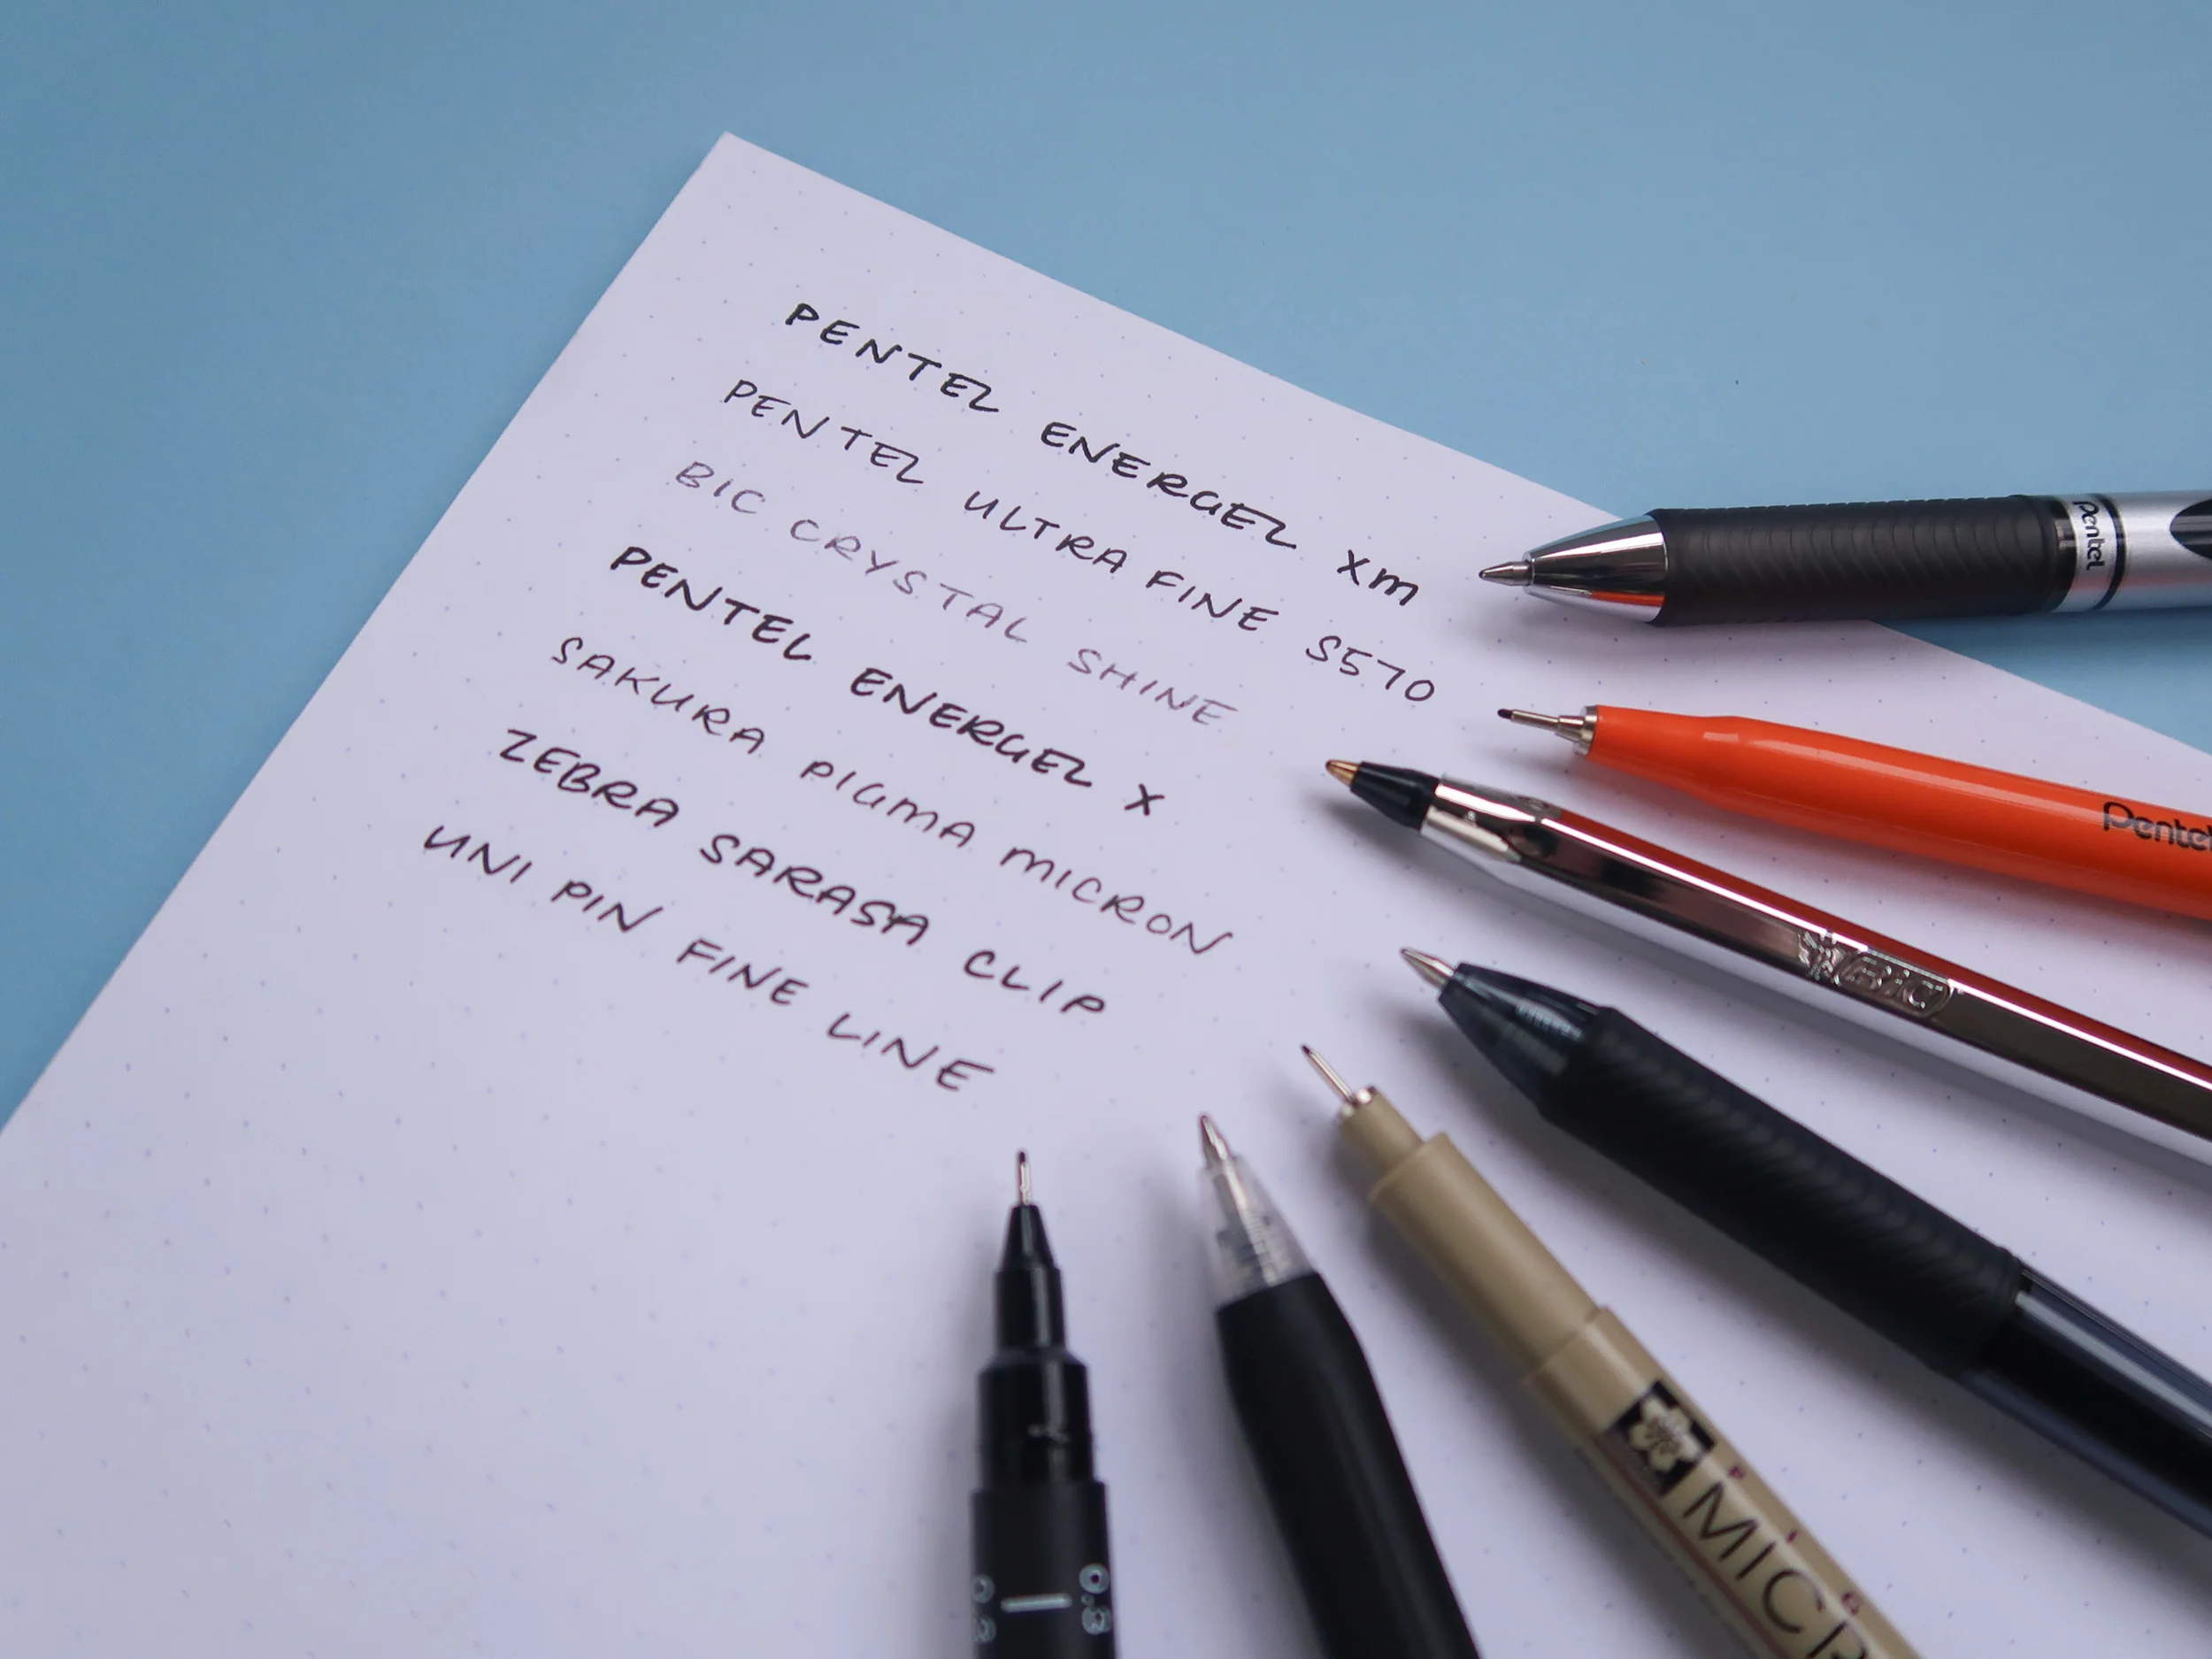 PENTEL ENERGEL Xm
PENTEL ULTRA FINE S570
BIC CRYSTAL SHINE
PENTEL ENERGEL X
SAKURA PIGMA MICRON
ZEBRA SARASA CLIP
UNI PIN FINE LINE
Pentel
Pentel
BIC
MICR
0.3
0.3